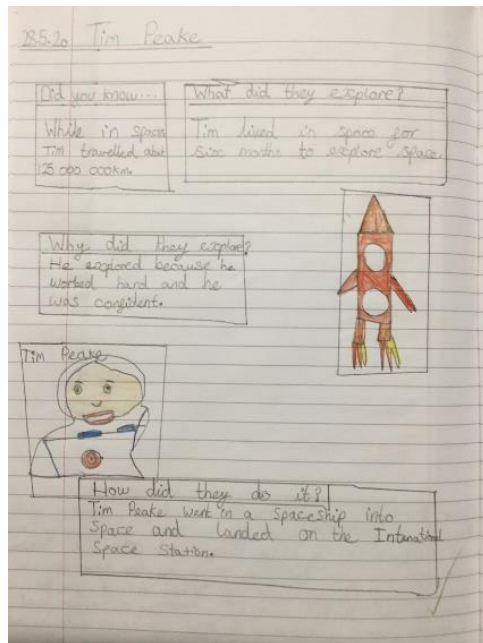 28.5.20 Tim Peake
Did you know...
While in space
Tim travelled abut
125 000 000km.
What did they explore?
Tim lived in space for
six months to explore space.
Why did they explore?
He explored because he
worked hard and he
was confident.
Tim Peake
How did they do it?
Tim Peake went in a spaceship into
space and landed on the
Space Station.